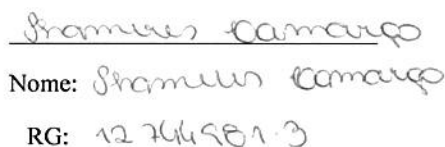 Thamires Camargo
Nome: Thamires Camargo
RG: 12744981-3